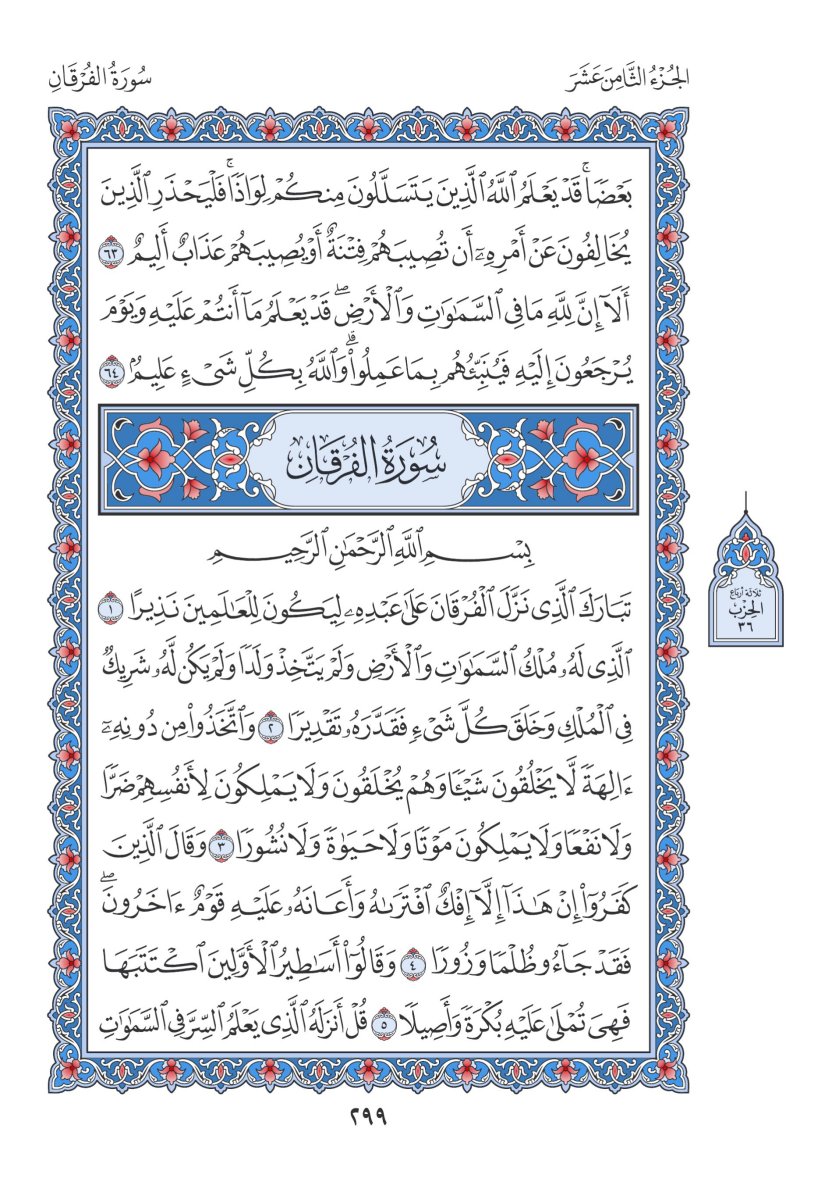 الجُزْءُ الثَّامِنَ عَشَرَ
سُورَةُ الفُرْقَانِ
بَعْضٗاۚ قَدۡ يَعۡلَمُ ٱللَّهُ ٱلَّذِينَ يَتَسَلَّلُونَ مِنكُمۡ لِوَاذٗاۚ فَلۡيَحۡذَرِ ٱلَّذِينَ
يُخَالِفُونَ عَنۡ أَمۡرِهِۦٓ أَن تُصِيبَهُمۡ فِتۡنَةٌ أَوۡ يُصِيبَهُمۡ عَذَابٌ أَلِيمٌ ٦٣
أَلَآ إِنَّ لِلَّهِ مَا فِي ٱلسَّمَٰوَٰتِ وَٱلۡأَرۡضِۖ قَدۡ يَعۡلَمُ مَآ أَنتُمۡ عَلَيۡهِ وَيَوۡمَ
يُرۡجَعُونَ إِلَيۡهِ فَيُنَبِّئُهُم بِمَا عَمِلُواْۗ وَٱللَّهُ بِكُلِّ شَيۡءٍ عَلِيمُۢ ٦٤
سُورَةُ الفُرْقَانِ
بِسۡمِ ٱللَّهِ ٱلرَّحۡمَٰنِ ٱلرَّحِيمِ
تَبَارَكَ ٱلَّذِي نَزَّلَ ٱلۡفُرۡقَانَ عَلَىٰ عَبۡدِهِۦ لِيَكُونَ لِلۡعَٰلَمِينَ نَذِيرًا ١
ٱلَّذِي لَهُۥ مُلۡكُ ٱلسَّمَٰوَٰتِ وَٱلۡأَرۡضِ وَلَمۡ يَتَّخِذۡ وَلَدٗا وَلَمۡ يَكُن لَّهُۥ شَرِيكٞ
فِي ٱلۡمُلۡكِ وَخَلَقَ كُلَّ شَيۡءٖ فَقَدَّرَهُۥ تَقۡدِيرٗا ٢ وَٱتَّخَذُواْ مِن دُونِهِۦٓ
ءَالِهَةٗ لَّا يَخۡلُقُونَ شَيۡـٔٗا وَهُمۡ يُخۡلَقُونَ وَلَا يَمۡلِكُونَ لِأَنفُسِهِمۡ ضَرّٗا
وَلَا نَفۡعٗا وَلَا يَمۡلِكُونَ مَوۡتٗا وَلَا حَيَوٰةٗ وَلَا نُشُورٗا ٣ وَقَالَ ٱلَّذِينَ
كَفَرُوٓاْ إِنۡ هَٰذَآ إِلَّآ إِفۡكٌ ٱفۡتَرَىٰهُ وَأَعَانَهُۥ عَلَيۡهِ قَوۡمٌ ءَاخَرُونَۖ
فَقَدۡ جَآءُو ظُلۡمٗا وَزُورٗا ٤ وَقَالُوٓاْ أَسَٰطِيرُ ٱلۡأَوَّلِينَ ٱكۡتَتَبَهَا
فَهِيَ تُمۡلَىٰ عَلَيۡهِ بُكۡرَةٗ وَأَصِيلٗا ٥ قُلۡ أَنزَلَهُ ٱلَّذِي يَعۡلَمُ ٱلسِّرَّ فِي ٱلسَّمَٰوَٰتِ
ثلاثة أرباع
الحِزْبُ
٣٦
٢٩٩